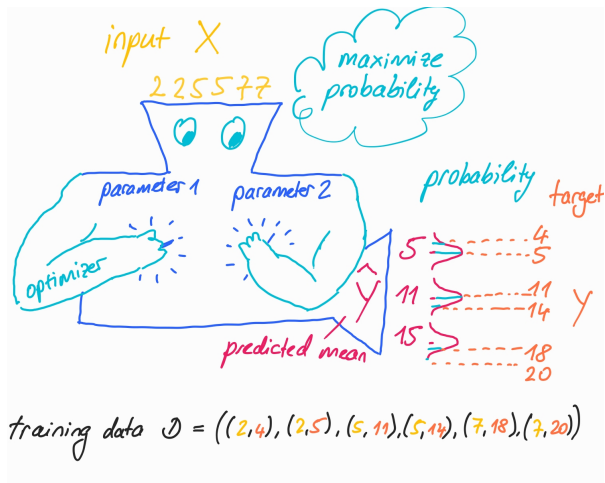 input X
2 2 5 5 7 7
maximize
probability
parameter 1
parameter 2
optimizer
probability
target
5
4
5
11
11
14
15
18
20
Ŷ
Y
predicted mean
training data D = ((2,4), (2,5), (5,11), (5,14), (7,18), (7,20))